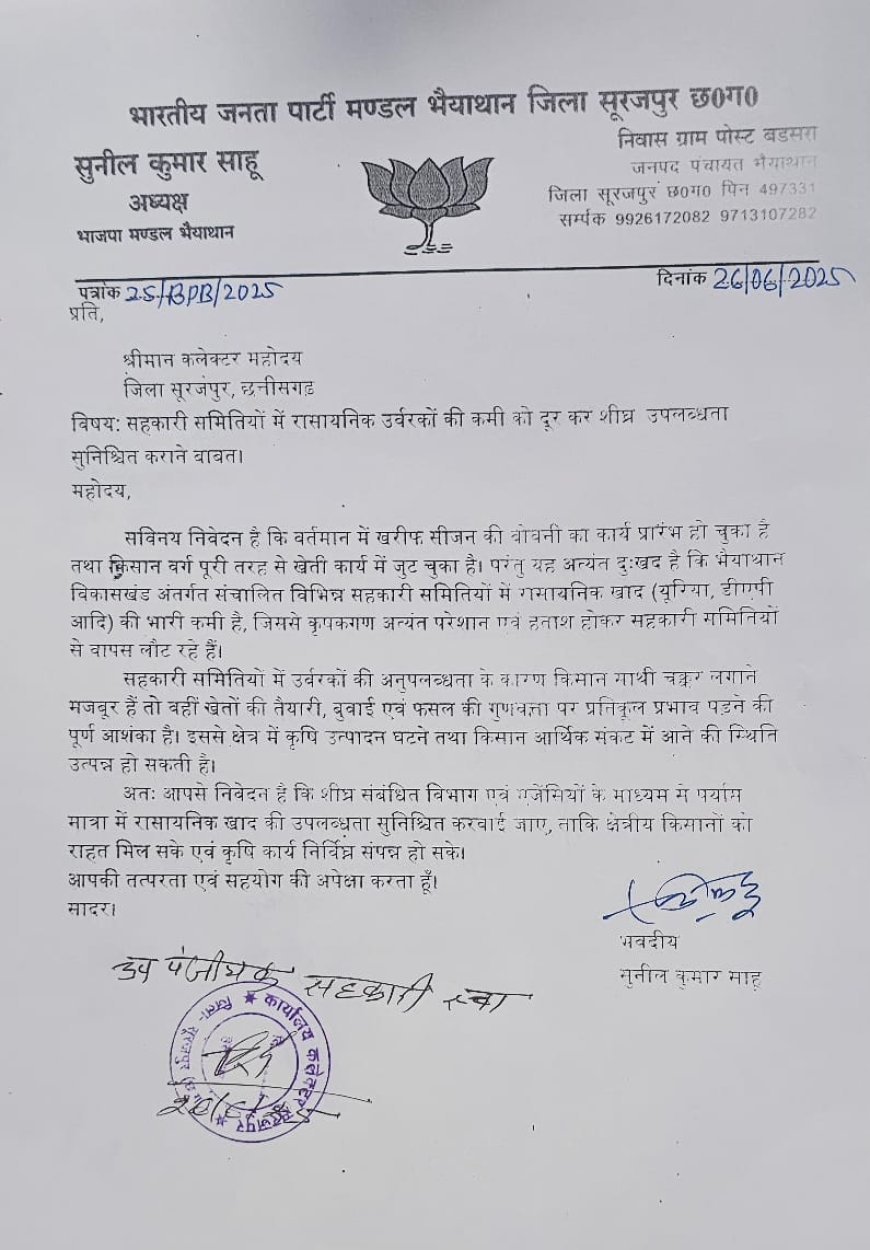 भारतीय जनता पार्टी मण्डल भैयाथान जिला सूरजपुर छ0ग0
सुनील कुमार साहू
अध्यक्ष
भाजपा मण्डल भैयाथान
निवास ग्राम पोस्ट बडसरा
जनपद पंचायत भैयाथान
जिला सूरजपुर छ0ग0 पिन 497331
सर्म्पक 9926172082 9713107282
पत्रांक 25/BPB/2025
दिनांक 26/06/2025
प्रति,
श्रीमान कलेक्टर महोदय
जिला सूरजपुर, छत्तीसगढ़
विषय: सहकारी समितियों में रासायनिक उर्वरकों की कमी को दूर कर शीघ्र उपलब्धता
सुनिश्चित कराने बाबत।
महोदय,
सविनय निवेदन है कि वर्तमान में खरीफ सीजन की बोवनी का कार्य प्रारंभ हो चुका है
तथा किसान वर्ग पूरी तरह से खेती कार्य में जुट चुका है। परंतु यह अत्यंत दुःखद है कि भैयाथान
विकासखंड अंतर्गत संचालित विभिन्न सहकारी समितियों में रासायनिक खाद (यूरिया, डीएपी
आदि) की भारी कमी है, जिससे कृषकगण अत्यंत परेशान एवं हताश होकर सहकारी समितियों
से वापस लौट रहे हैं।
सहकारी समितियों में उर्वरकों की अनुपलब्धता के कारण किसान साथी चक्कर लगाने
मजबूर हैं तो वहीं खेतों की तैयारी, बुवाई एवं फसल की गुणवत्ता पर प्रतिकूल प्रभाव पड़ने की
पूर्ण आशंका है। इससे क्षेत्र में कृषि उत्पादन घटने तथा किसान आर्थिक संकट में आने की स्थिति
उत्पन्न हो सकती है।
अतः आपसे निवेदन है कि शीघ्र संबंधित विभाग एवं एजेंसियों के माध्यम से पर्याप्त
मात्रा में रासायनिक खाद की उपलब्धता सुनिश्चित करवाई जाए, ताकि क्षेत्रीय किसानों को
राहत मिल सके एवं कृषि कार्य निर्विघ्न संपन्न हो सके।
आपकी तत्परता एवं सहयोग की अपेक्षा करता हूँ।
सादर।
भवदीय
सुनील कुमार साहू
उप पंजीयक सहकारी
कार्यालय कलेक्टर सूरजपुर
जिला- सूरजपुर